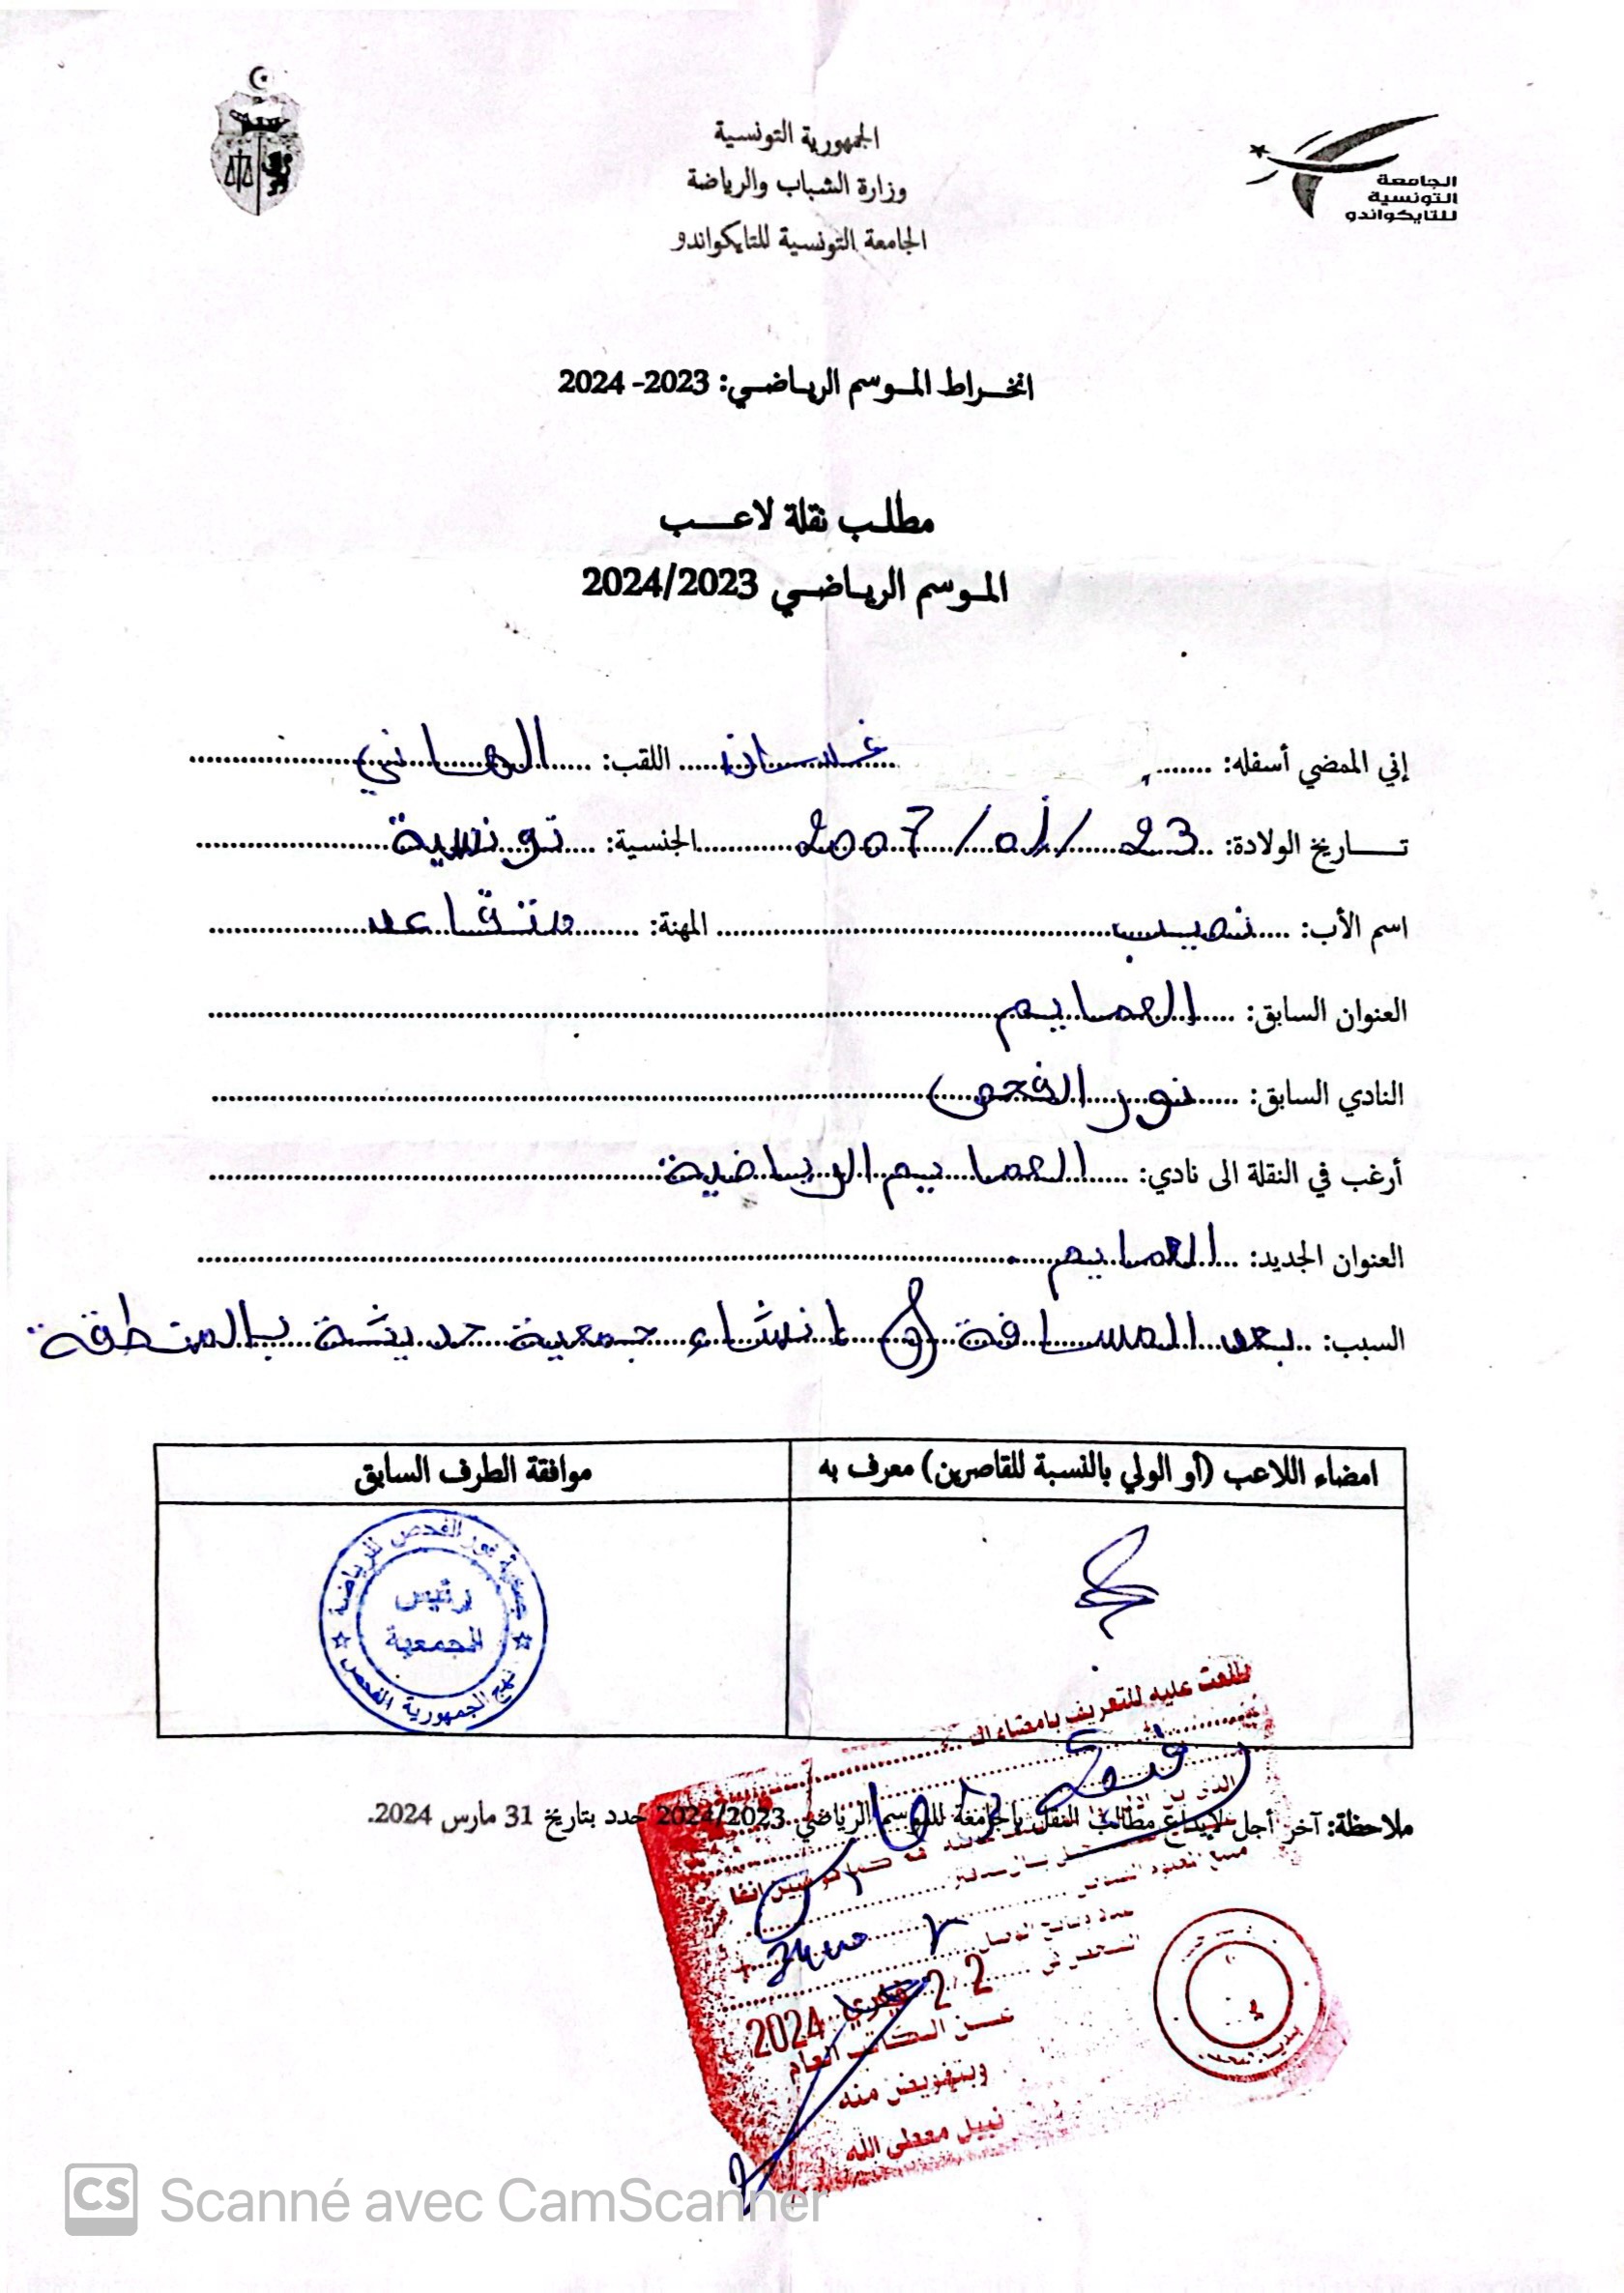 الجمهورية التونسية
وزارة الشباب والرياضة
الجامعة التونسية للتايكواندو
الجامعة
التونسية
للتايكواندو
انخراط الموسم الرياضي: 2023- 2024
مطلب نقلة لاعب
الموسم الرياضي 2024/2023
إني الممضي أسفله: غسان اللقب: الهاني
تاريخ الولادة: 23/01/2007 الجنسية: تونسية
اسم الأب: نصيب المهنة: متقاعد
العنوان السابق: العمايم
النادي السابق: نور الفحص
أرغب في النقلة الى نادي: العمايم الرياضية
العنوان الجديد: العمايم
السبب: بعد المسافة و انشاء جمعية حديثة بالمنطقة
امضاء اللاعب (أو الولي بالنسبة للقاصرين) معرف به
موافقة الطرف السابق
جمعية نور الفحص للرياضة
رئيس
الجمعية
نهج الجمهورية الفحص
اطلعت عليه للتعريف بامضاء ال
ملاحظة: آخر أجل لإيداع مطالب النقل بالجامعة للموسم الرياضي 2024/2023 حدد بتاريخ 31 مارس 2024.
22 فيفري 2024
عن الكاتب العام
وبتفويض منه
نبيل معطى الله
CS Scanné avec CamScanner